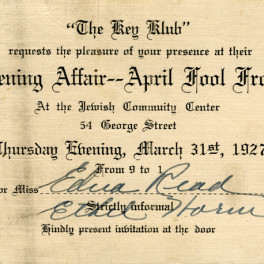 "The Key Klub"
requests the pleasure of your presence at their
ening Affair--April Fool Fro
At the Jewish Comunity Center
54 George Street
Thursday Evening, March 31st, 1927
From 9 to 1
or Miss Edna Read
Strictly informal
Ethel Horn
Kindly present invitation at the door